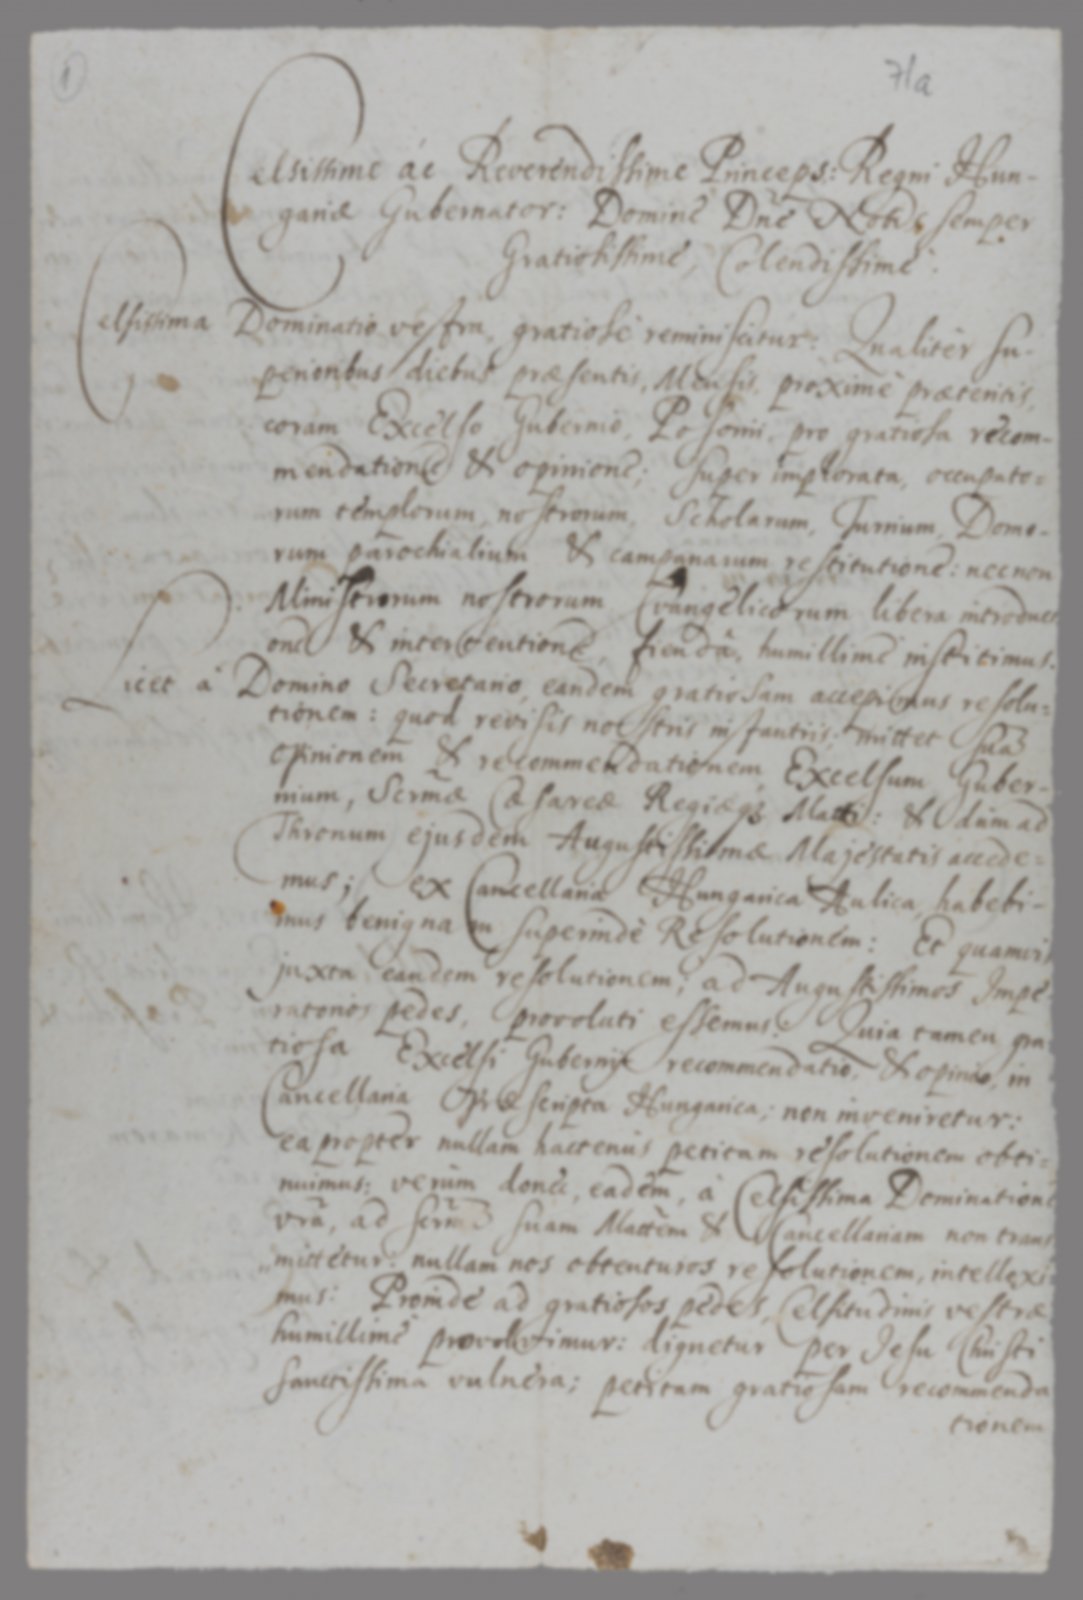 1
71a
Celsissime ác Reverendissime Princeps: Regni Hun-
gariæ Gubernator: Domine Dnē Nobis semper
Gratiosissime, Colendissime.
Celsissima Dominatio vestra, gratiosè reminiscitur: Qualiter su-
perioribus diebus præsentis, Mensis, proximè præteritis,
coram Excelso Gubernio, Posonii, pro gratiosa recom-
mendatione & opinione; super implorata, occupato-
rum templorum, nostrorum, Scholarum, Turrium, Domo-
rum parochialium & campanarum restitutione: necnon
Ministrorum nostrorum Evangelicorum libera introducti
one & intertentione, fiendâ, humillimè institimus.
Licet à Domino Secretario, eandem gratiosam accepimus resolu-
tionem: quod revisis nostris instantiis, mittet suā
opinionem & recommendationem Excelsum Guber-
nium, Sermæ Cæsareæ Regiæq3 Matti: & dum ad
Thronum ejusdem Augustissimæ Majestatis accede-
mus; ex Cancellaria Hungarica Aulica, habebi-
mus benignam superinde Resolutionem: Et quamvis
juxta eandem resolutionem, ad Augustissimos Impe-
ratorios pedes, provoluti essemus: Quia tamen gra-
tiosa Excelsi Gubernij recommendatio, & opinio, in
Cancellaria Præscripta Hungarica; non inveniretur:
ea propter nullam hactenus petitam resolutionem obti-
nuimus; verùm donec, eadem, à Celsissima Dominatione
vrā, ad Sermā suam Mattem & Cancellariam non trans
mittetur: nullam nos obtenturos resolutionem, intellexi-
mus: Proinde ad gratiosos pedes, Celsitudinis vestræ
humillimè provolvimur: dignetur per Jesu Christi
sanctissima vulnera; petitam gratiosam recommenda
tionem